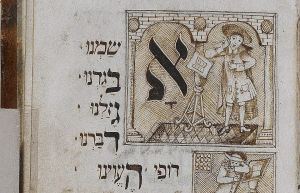 אשמנו
בגדנו
גזלנו
דברנו
דופי העוינו